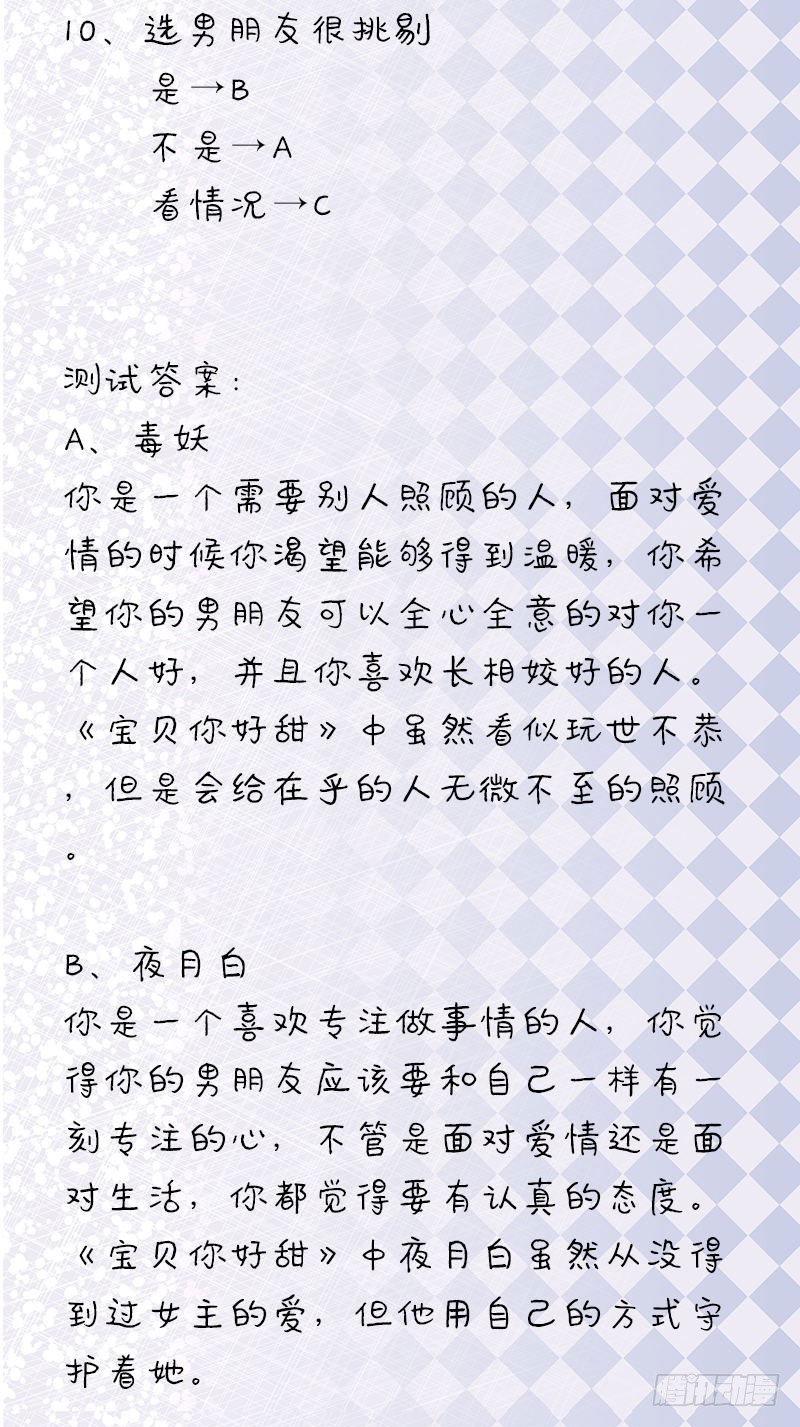 10、选男朋友很挑剔
是→B
不是→A
看情况→C
测试答案：
A、毒妖
你是一个需要别人照顾的人，面对爱
情的时候你渴望能够得到温暖，你希
望你的男朋友可以全心全意的对你一
个人好，并且你喜欢长相姣好的人。
《宝贝你好甜》中虽然看似玩世不恭
，但是会给在乎的人无微不至的照顾
。
B、夜月白
你是一个喜欢专注做事情的人，你觉
得你的男朋友应该要和自己一样有一
刻专注的心，不管是面对爱情还是面
对生活，你都觉得要有认真的态度。
《宝贝你好甜》中夜月白虽然从没得
到过女主的爱，但他用自己的方式守
护着她。
腾讯动漫